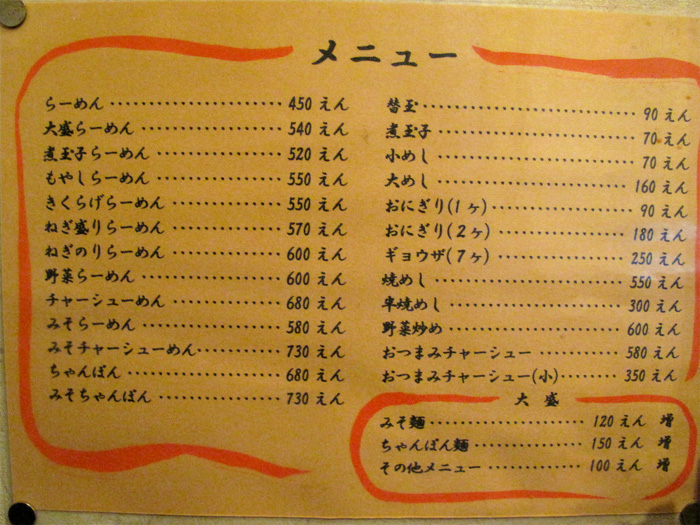 メニュー
らーめん 450 えん
大盛らーめん 540 えん
煮玉子らーめん 520 えん
もやしらーめん 550 えん
きくらげらーめん 550 えん
ねぎ盛りらーめん 570 えん
ねぎのりらーめん 600 えん
野菜らーめん 600 えん
チャーシューめん 680 えん
みそらーめん 580 えん
みそチャーシューめん 730 えん
ちゃんぽん 680 えん
みそちゃんぽん 730 えん
替玉 90 えん
煮玉子 70 えん
小めし 70 えん
大めし 160 えん
おにぎり(1ヶ) 90 えん
おにぎり(2ヶ) 180 えん
ギョウザ(7ヶ) 250 えん
焼めし 550 えん
半焼めし 300 えん
野菜炒め 600 えん
おつまみチャーシュー 580 えん
おつまみチャーシュー(小) 350 えん
大 盛
みそ麺 120 えん 増
ちゃんぽん麺 150 えん 増
その他メニュー 100 えん 増